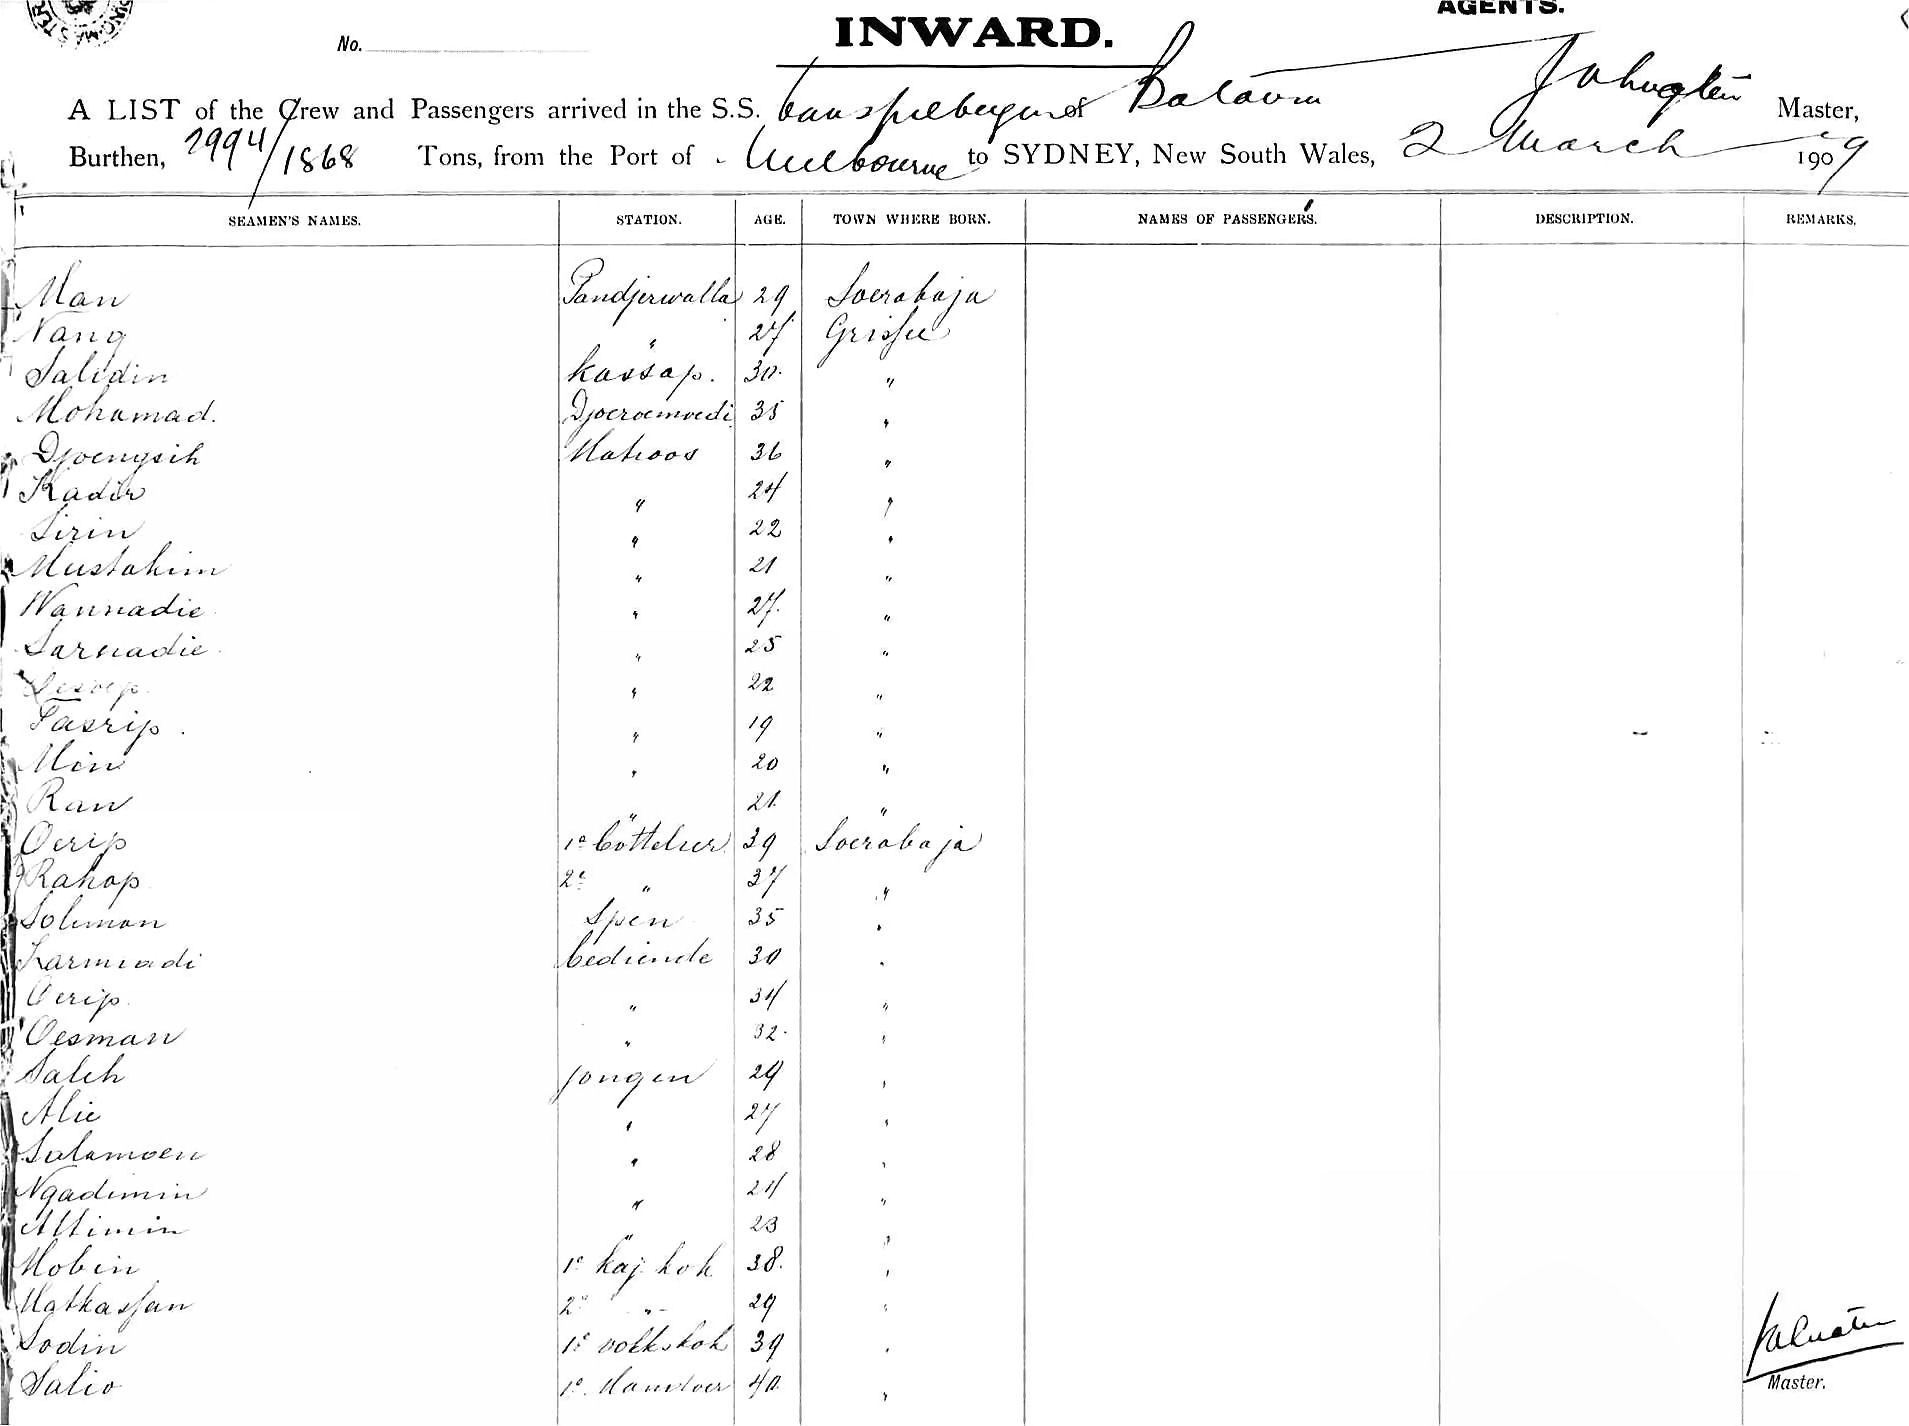 AGENTS.
No.
INWARD.
A LIST of the Crew and Passengers arrived in the S.S. van Spilbergen of Batavia Master,
Burthen, 2994/1868 Tons, from the Port of Melbourne to SYDNEY, New South Wales, 2 March 1909
SEAMEN'S NAMES. STATION. AGE. TOWN WHERE BORN. NAMES OF PASSENGERS. DESCRIPTION. REMARKS.
Man Pandjerwalla 29 Soerabaja
Nang " 27 Grissee
Salidin kassap. 30. "
Mohamad. Djoeroemoedi 35 "
Djoengsih Matroos 36 "
Kadir " 24 "
Sirin " 22 "
Mustakim " 21 "
Wannadie " 27. "
Sarnadie " 25 "
" 22 "
Tasrip. " 19 "
Min " 20 "
Ran " 21 "
Oerip 1e bottelier 39 Soerabaja
Rahap 2e " 37 "
Soliman Spen 35 "
Karmiadi bediende 30 "
Oerip. " 34 "
Oesman " 32. "
Saleh jongen 29 "
Alie " 27 "
Salamoen " 28 "
Ngadimin " 24 "
Altimin " 23 "
Mobin 1e kaj. kok 38. "
Matkassan 2e " 29 "
Sodin 1e volkskok 39 "
Salio 1e 40 "
Master.